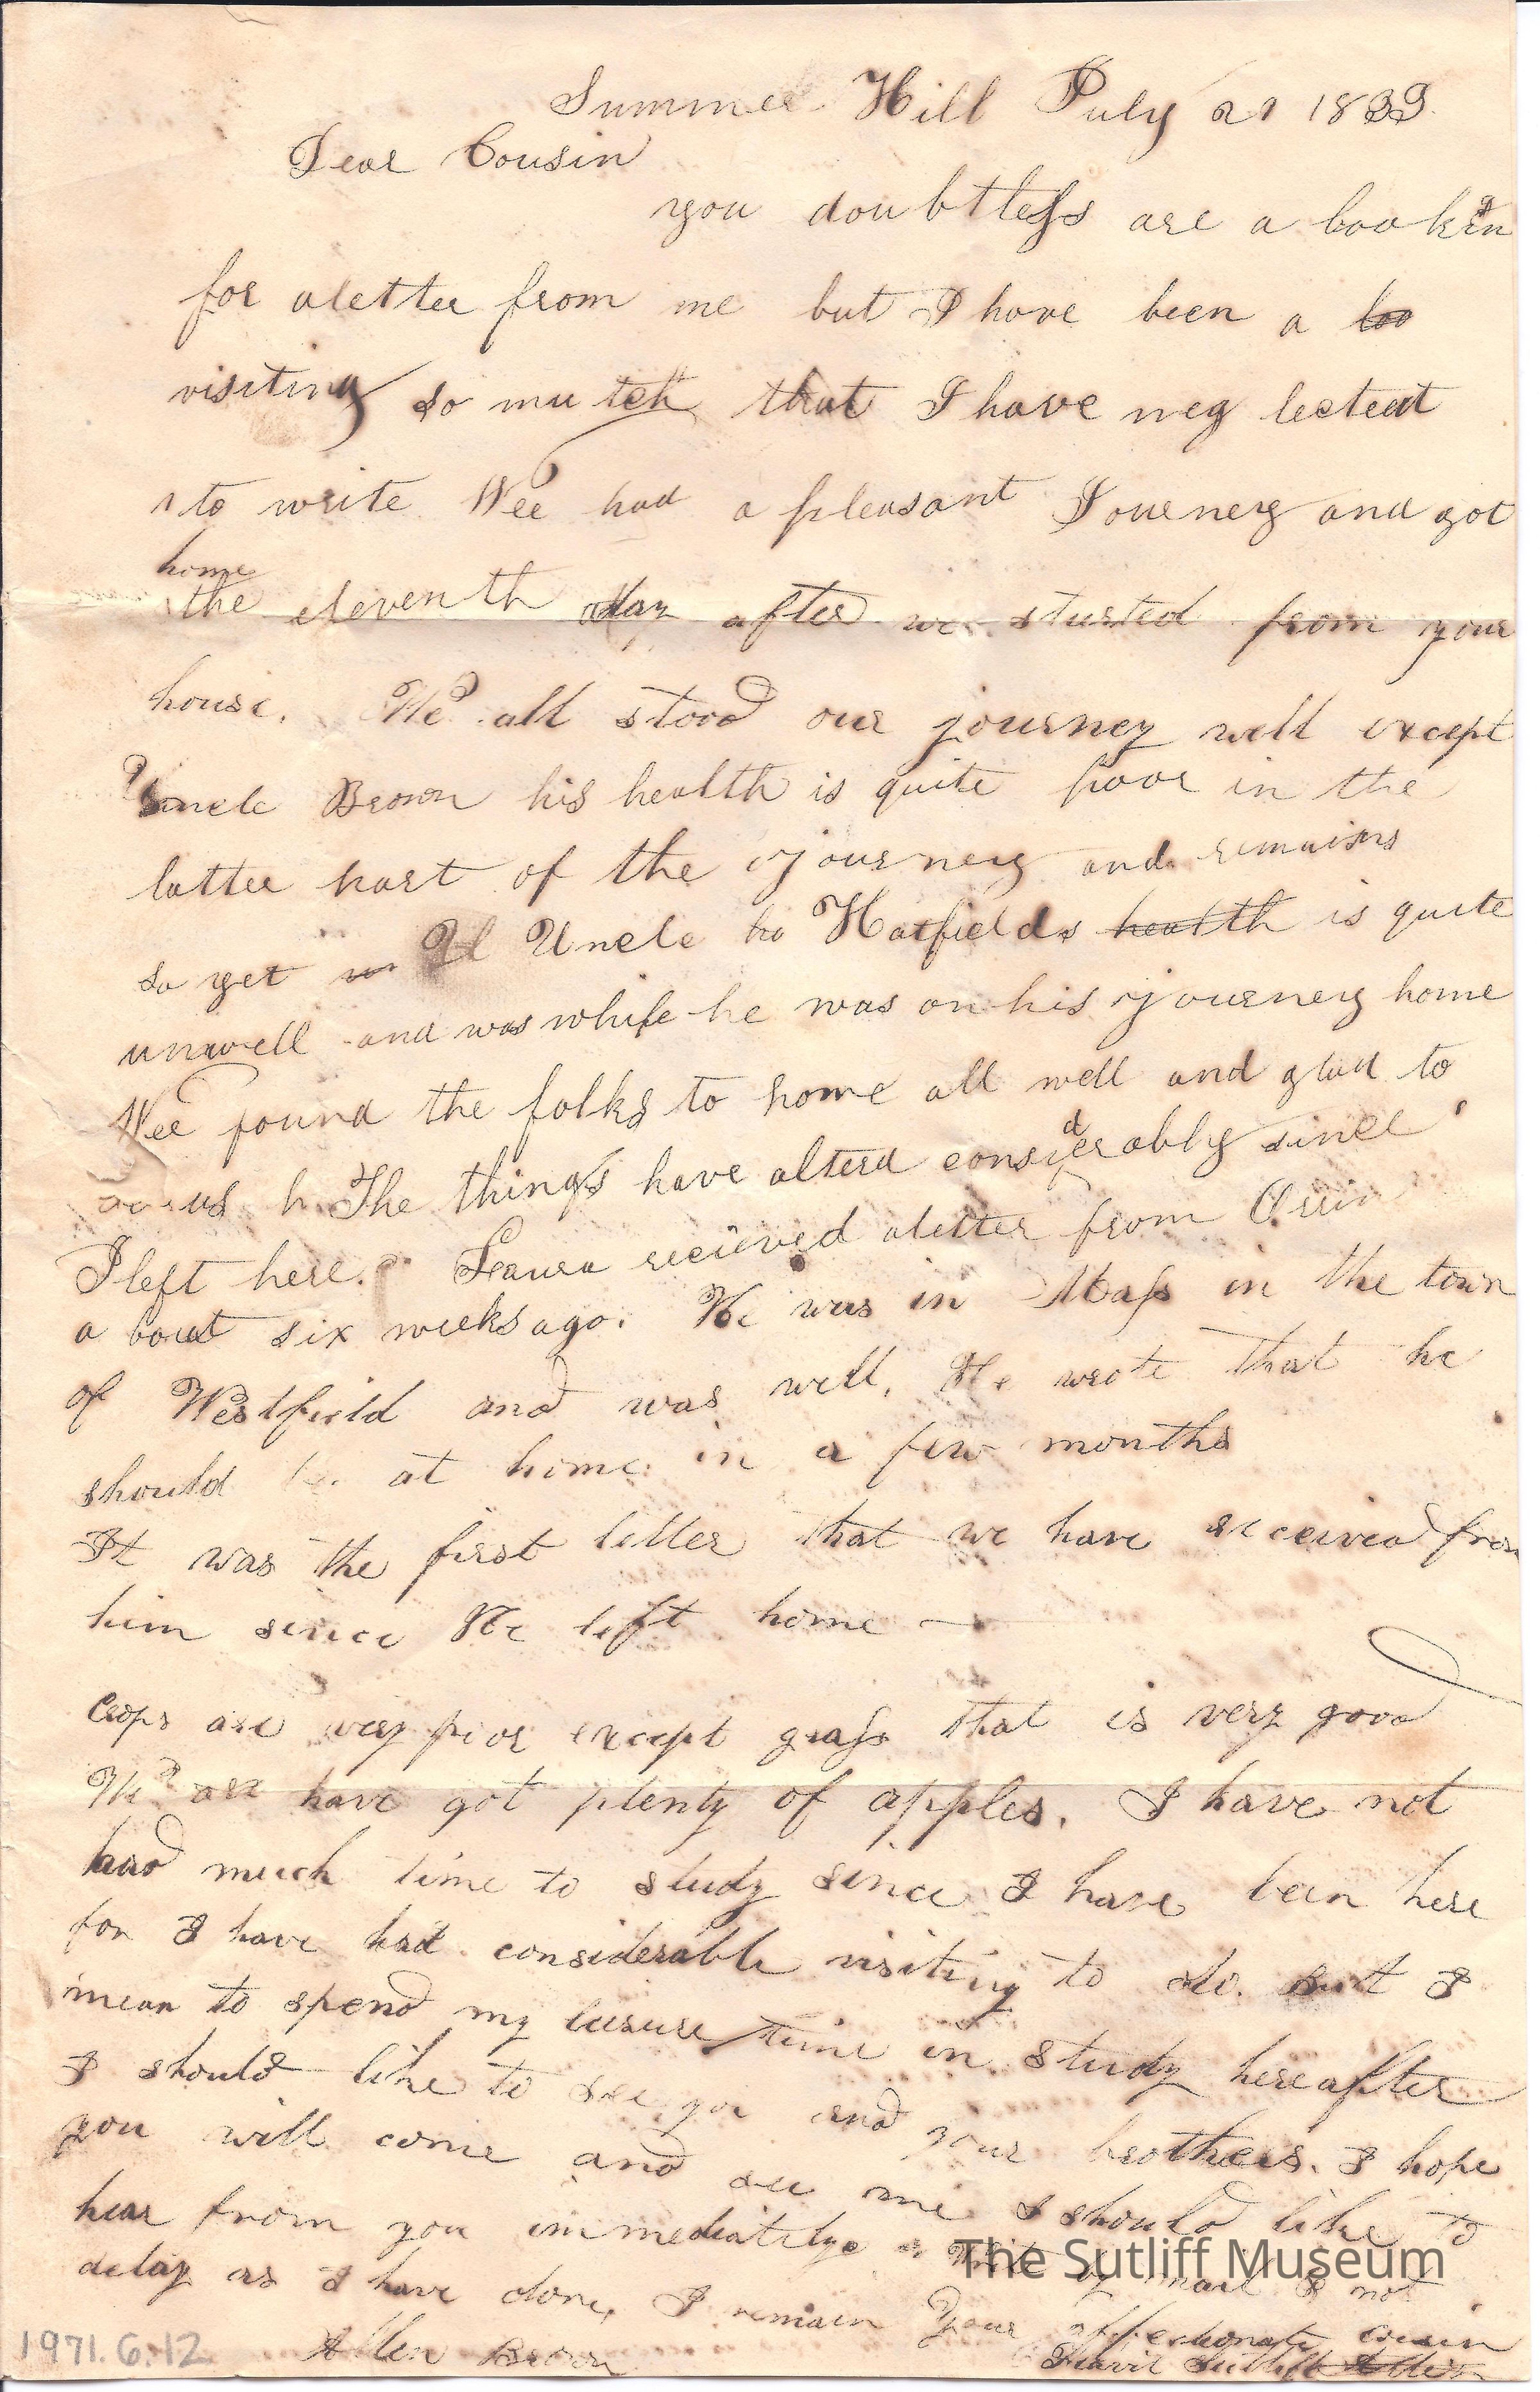 Summer Hill July 21 1839.
Dear Cousin
you doubtless are a lookin g
for aletter from me but I have been a loo
visiting so mutch that I have neg lected
to write Wee had a pleasant Journey and got
home
the eleventh day after we started from your
house. We all stood our journey well except
Uncle Brown his health is quite poor in the
latter part of the journey and remains
so yet Uncle Hatfields health is quite
unwell and was while he was on his journey home
Wee found the folks to home all well and glad to
us h The things have alterd considerably since
I left here. Laura recieved aletter from Orrin
a bout six weeks ago. He was in Mass in the town
of Westfield and was well. He wrote that he
should be at home in a few months
It was the first letter that we have received from
him since He left home —
Crops are very poor except grass that is very good
We are have got plenty of apples. I have not
had much time to study since I have been here
for I have had considerable visiting to do. But I
mean to spend my leisure time in study hereafter
I should like to see you and your brothers. I hope
you will come and see me I should like to
hear from you immediately by mail & not
delay as I have done, I remain Your affectionate cousin
Allen Brown
Sutliff
The Sutliff Museum
1971.6.12